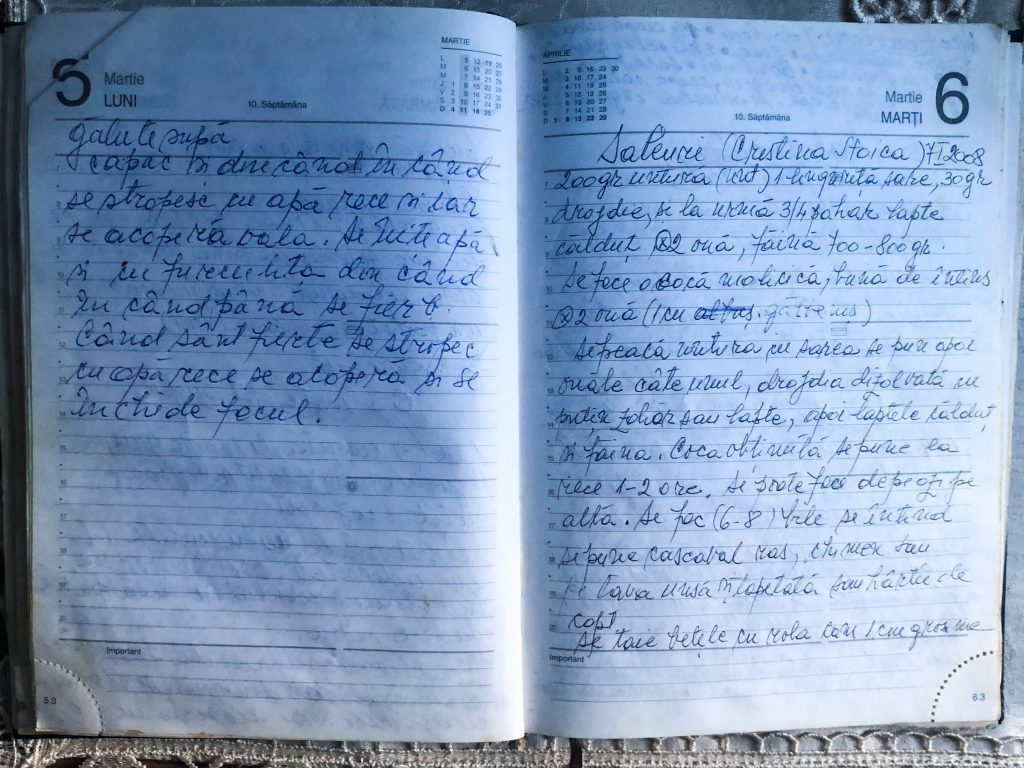 5
Martie
LUNI
10. Săptămâna
MARTIE
L 5 12 19 26
M 6 13 20 27
M 7 14 21 28
J 1 8 15 22 29
V 2 9 16 23 30
S 3 10 17 24 31
D 4 11 18 25
găluște supă
capac și din când în când
se stropesc cu apă rece și iar
se acoperă oala. Se înțeapă
și cu furculița din când
în când până se fierb.
Când sânt fierte se stropec
cu apă rece se acoperă și se
închide focul.
Important
5.3
APRILIE
L 2 9 16 23 30
M 3 10 17 24
M 4 11 18 25
J 5 12 19 26
V 6 13 20 27
S 7 14 21 28
D 1 8 15 22 29
10. Săptămâna
Martie
MARȚI
6
Saleuri (Cristina Stoica) 7 I 2008
200gr untura (unt) 1 linguriță sare, 30gr
drojdie, și la urmă 3/4 pahar lapte
călduț, 2 ouă, făină 700-800gr.
Se face o cocă molticică, bună de întins
2 ouă (1 cu albuș)
Se freacă untura cu sarea se pun apoi
ouăle câte unul, drojdia dizolvată cu
puțin zahăr sau lapte, apoi laptele călduț
și făina. Coca obținută se pune la
rece 1-2 ore. Se poate face de pe o zi pe
alta. Se fac (6-8) bile se întind
se pune cascaval ras, chimen sau
tava unsă și tapetată sau hârtie de
copt
Se taie bețele cu rola cam 1 cm grosime
Important
6.3